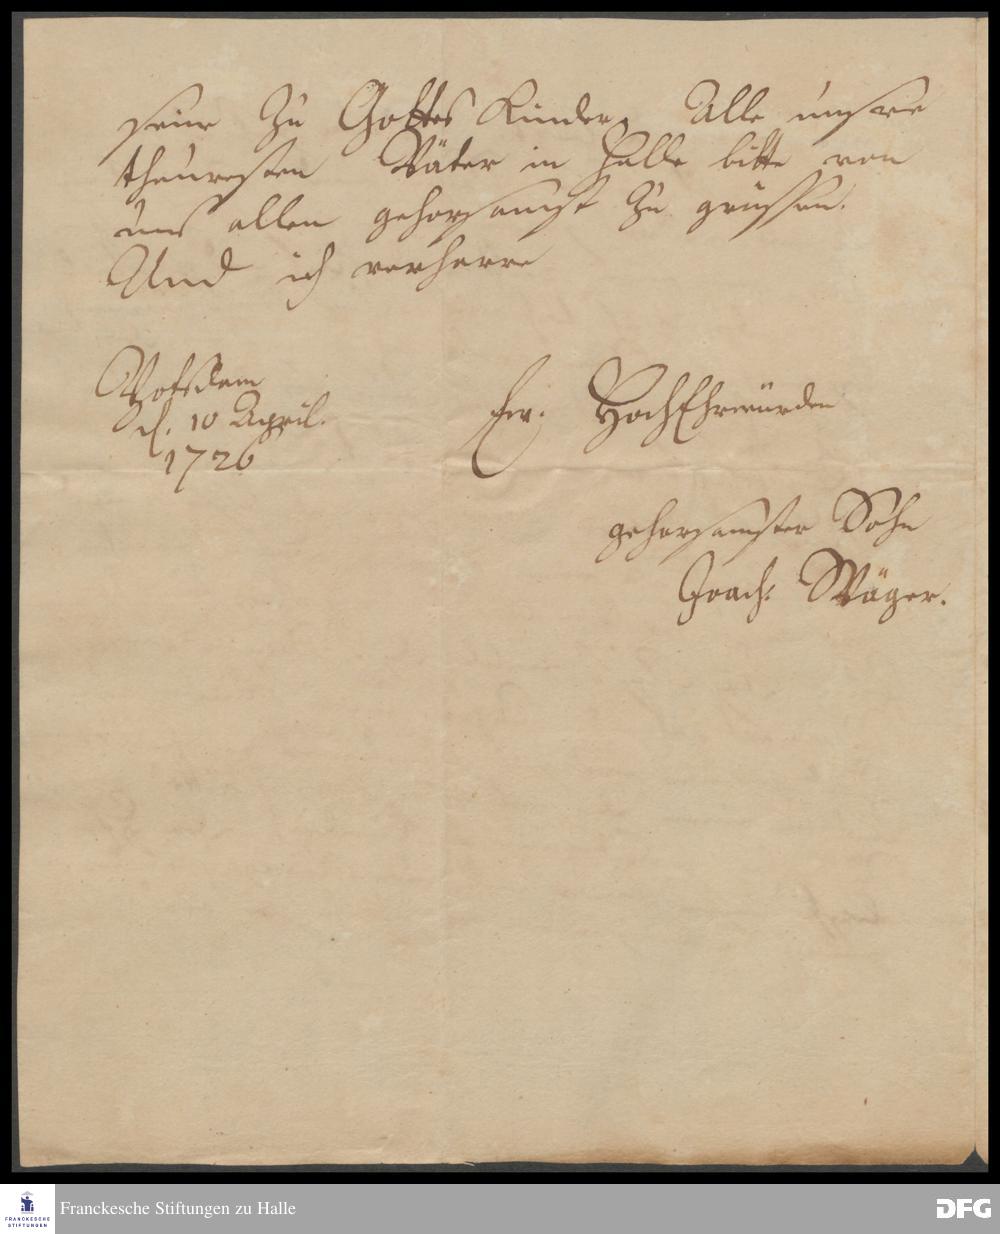 seine zu Gottes Kinder. Alle unsre
theuresten Väter in Halle bitte von
uns allen gehorsamst zu grüssen.
Und ich verharre
Potsdam
d. 10 April.
1726
Ew. HochEhrwürden
gehorsamster Sohn
Joach. Wäger.
FRANCKESCHE
STIFTUNGEN
Franckesche Stiftungen zu Halle
DFG